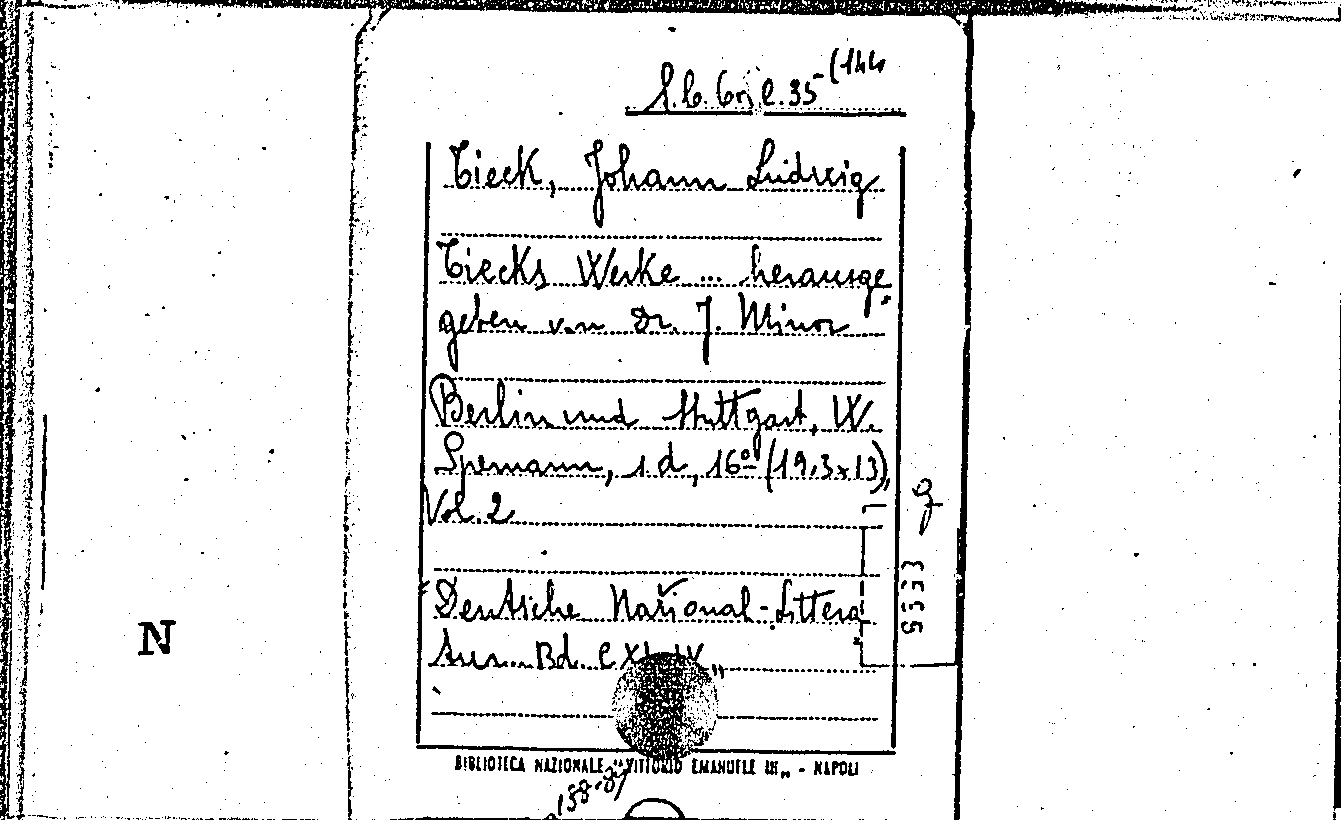 S.C. Grj C.35 (144
Tieck, Johann Ludwig
Tiecks Werke ... herausge
geben von Dr. J. Minor
Berlin und Stuttgart, W.
Spemann, s.d., 16º (19,3x13),
Vol. 2
"Deutsche National-Littera
tur... Bd. CXLIV"
g
5553
N
BIBLIOTECA NAZIONALE "VITTORIO EMANUELE III" - NAPOLI